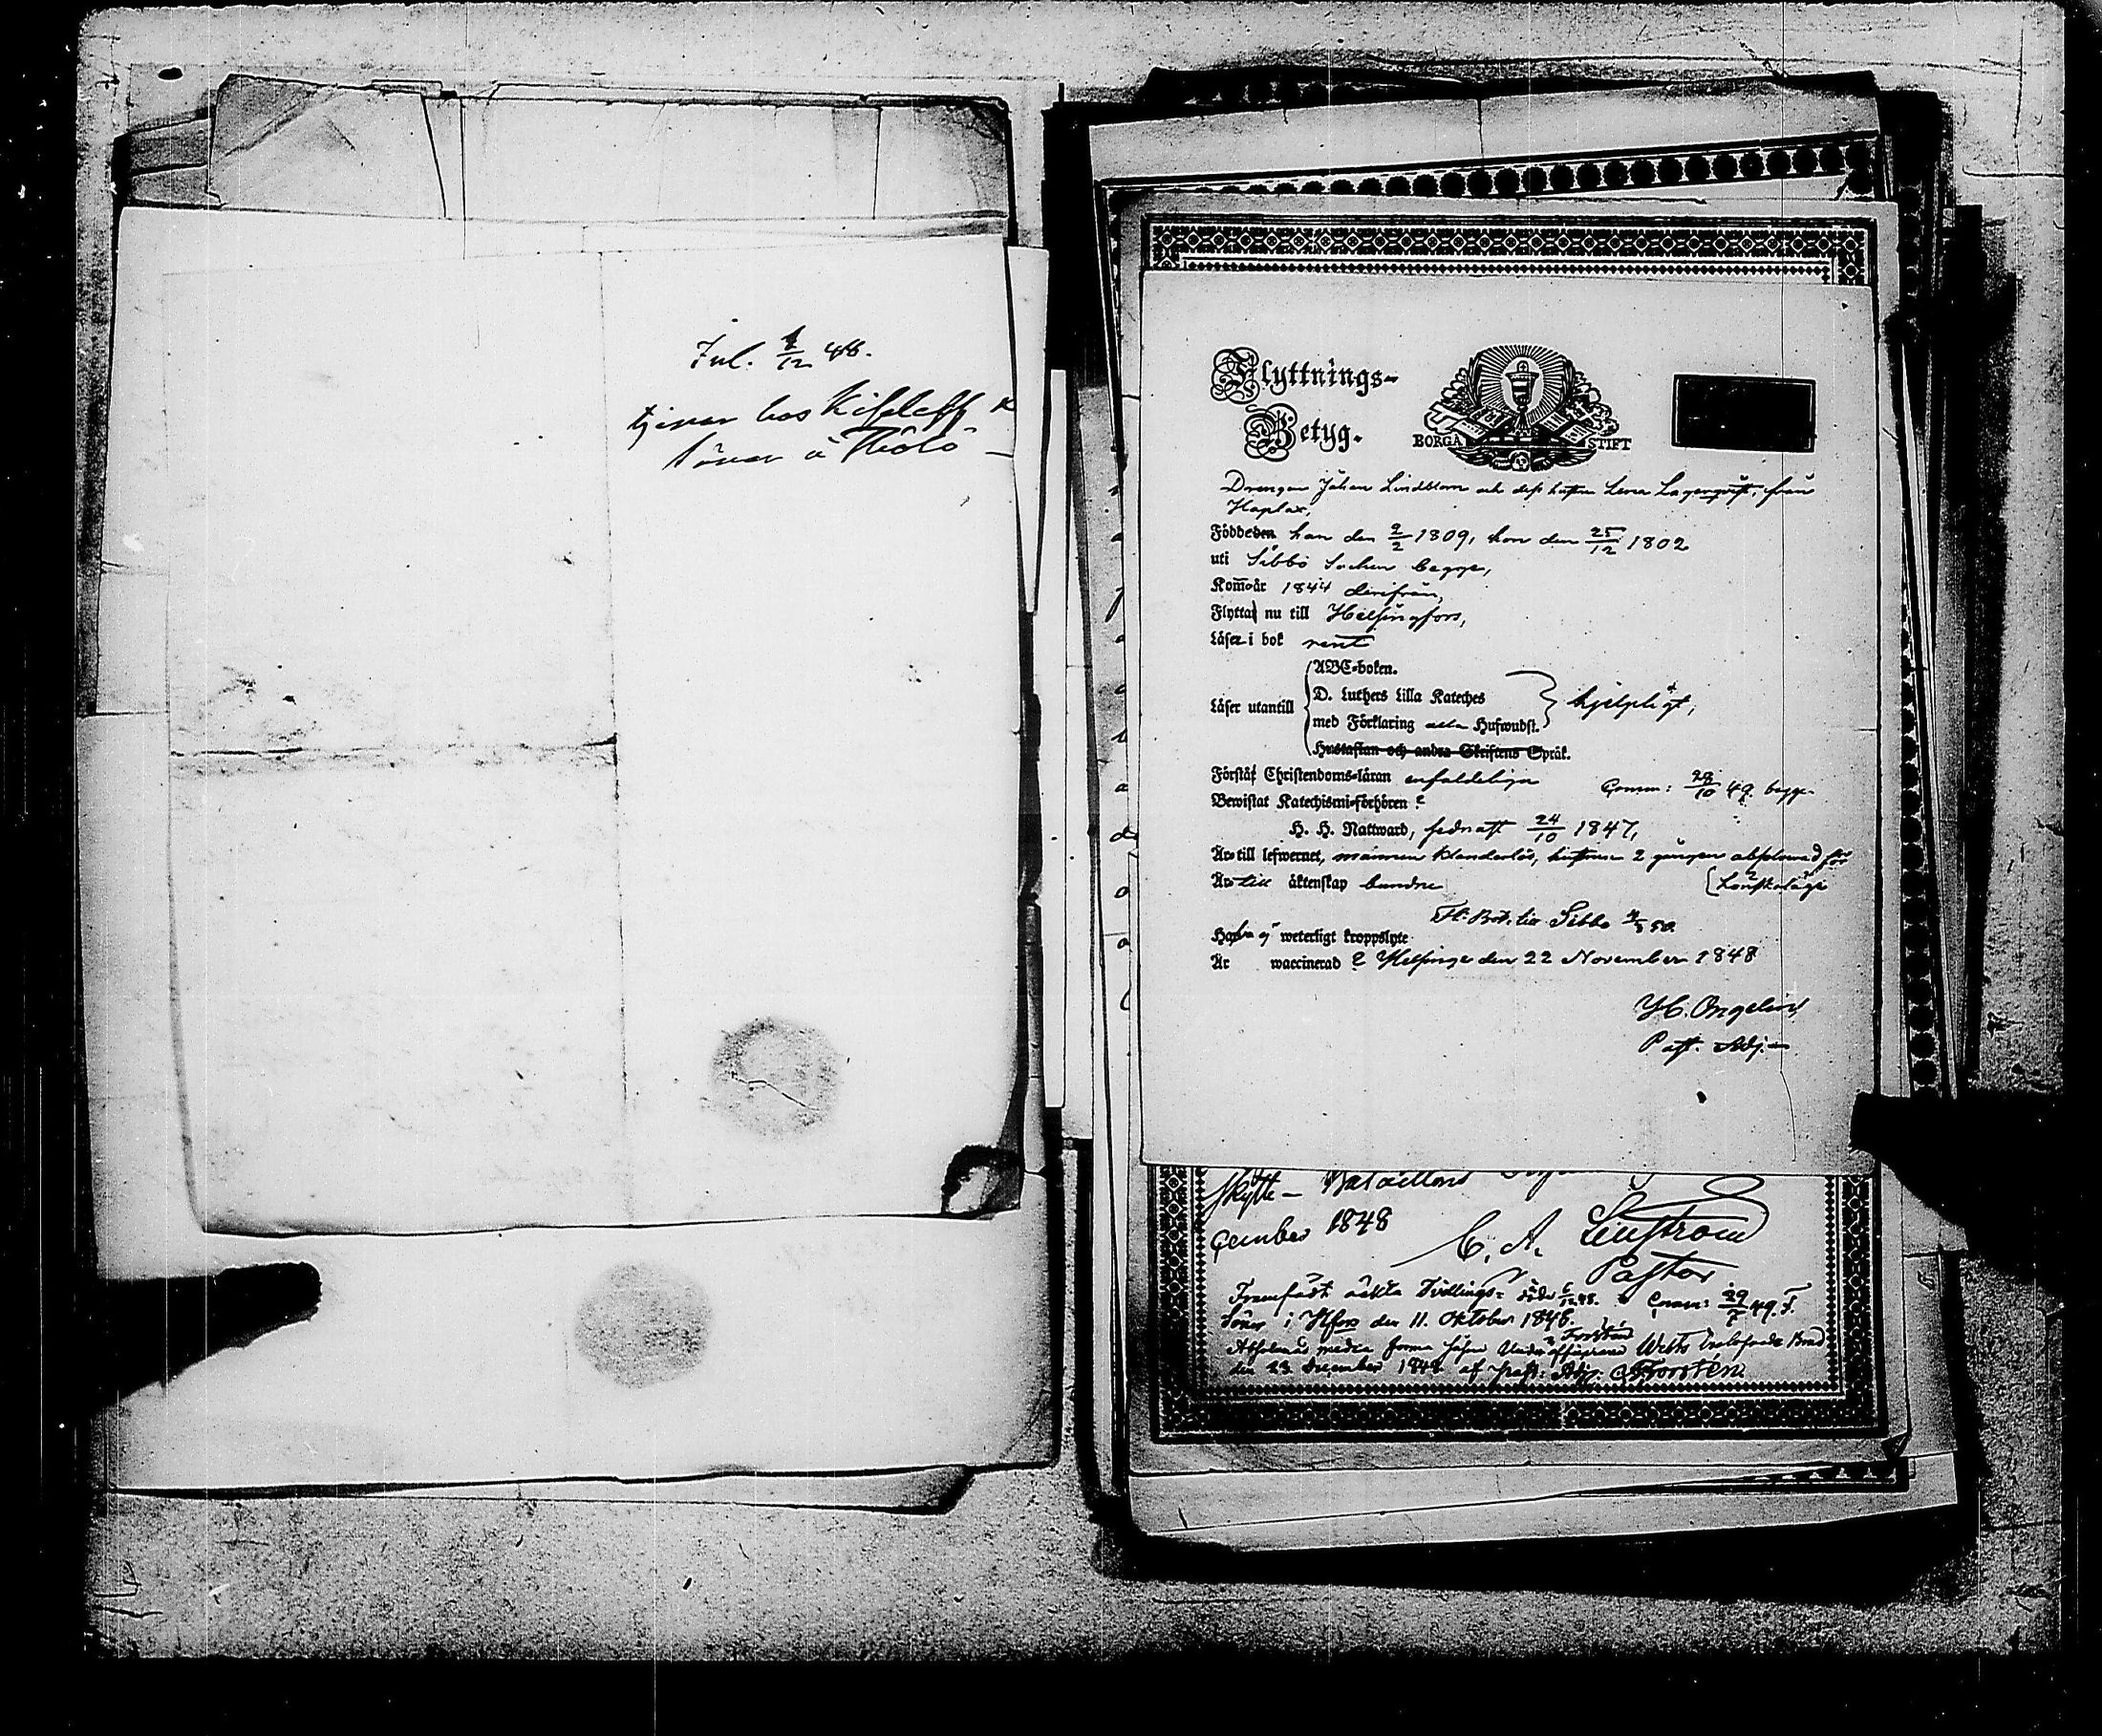 Inl. 1/12 48.
tjenar hos Kiseleff
å Thölö
Flyttnings-
Betyg.
BORGÅ STIFT
Drengen Johan Lindblom och dess hustru Lena Lagerqvist, från
Haplax,
Födde den han den 2/2 1809, hon den 25/12 1802
uti Sibbo Socken begge,
Kom år 1844 derifrån,
Flytta nu till Helsingfors,
Läser i bok rent
Läser utantill
ABC-boken.
D. Luthers lilla Kateches
med Förklaring alla Hufwudst.
hjelpligt,
Hustaflan och andra Skriftens Språk.
Förstå Christendoms-läran enfaldeligen
Comm: 28/10 49. begge
Bewistat Katechismi-förhören ?
H. H. Nattward, sednast 24/10 1847,
Är till lefwernet, mannen klanderlös, hustrun 2 gånger absolverad för
Lönskaläge
Är till äktenskap bundne
Fl. Bet. till Sibbo 50
Hafva ej weterligt kroppslyte
Är waccinerad ? Helsinge den 22 November 1848
H. Ongelin
Past. Adj.
Skytte- Bataillons
cember 1848
C. A.
Pastor
Framfödt äckta Tvillings- döde 6/12 48. Comm: 29/7 49. F.
Söner i Hfors den 11. Oktober 1848.
den 23 December 1848 af Past. Adj. Forstén